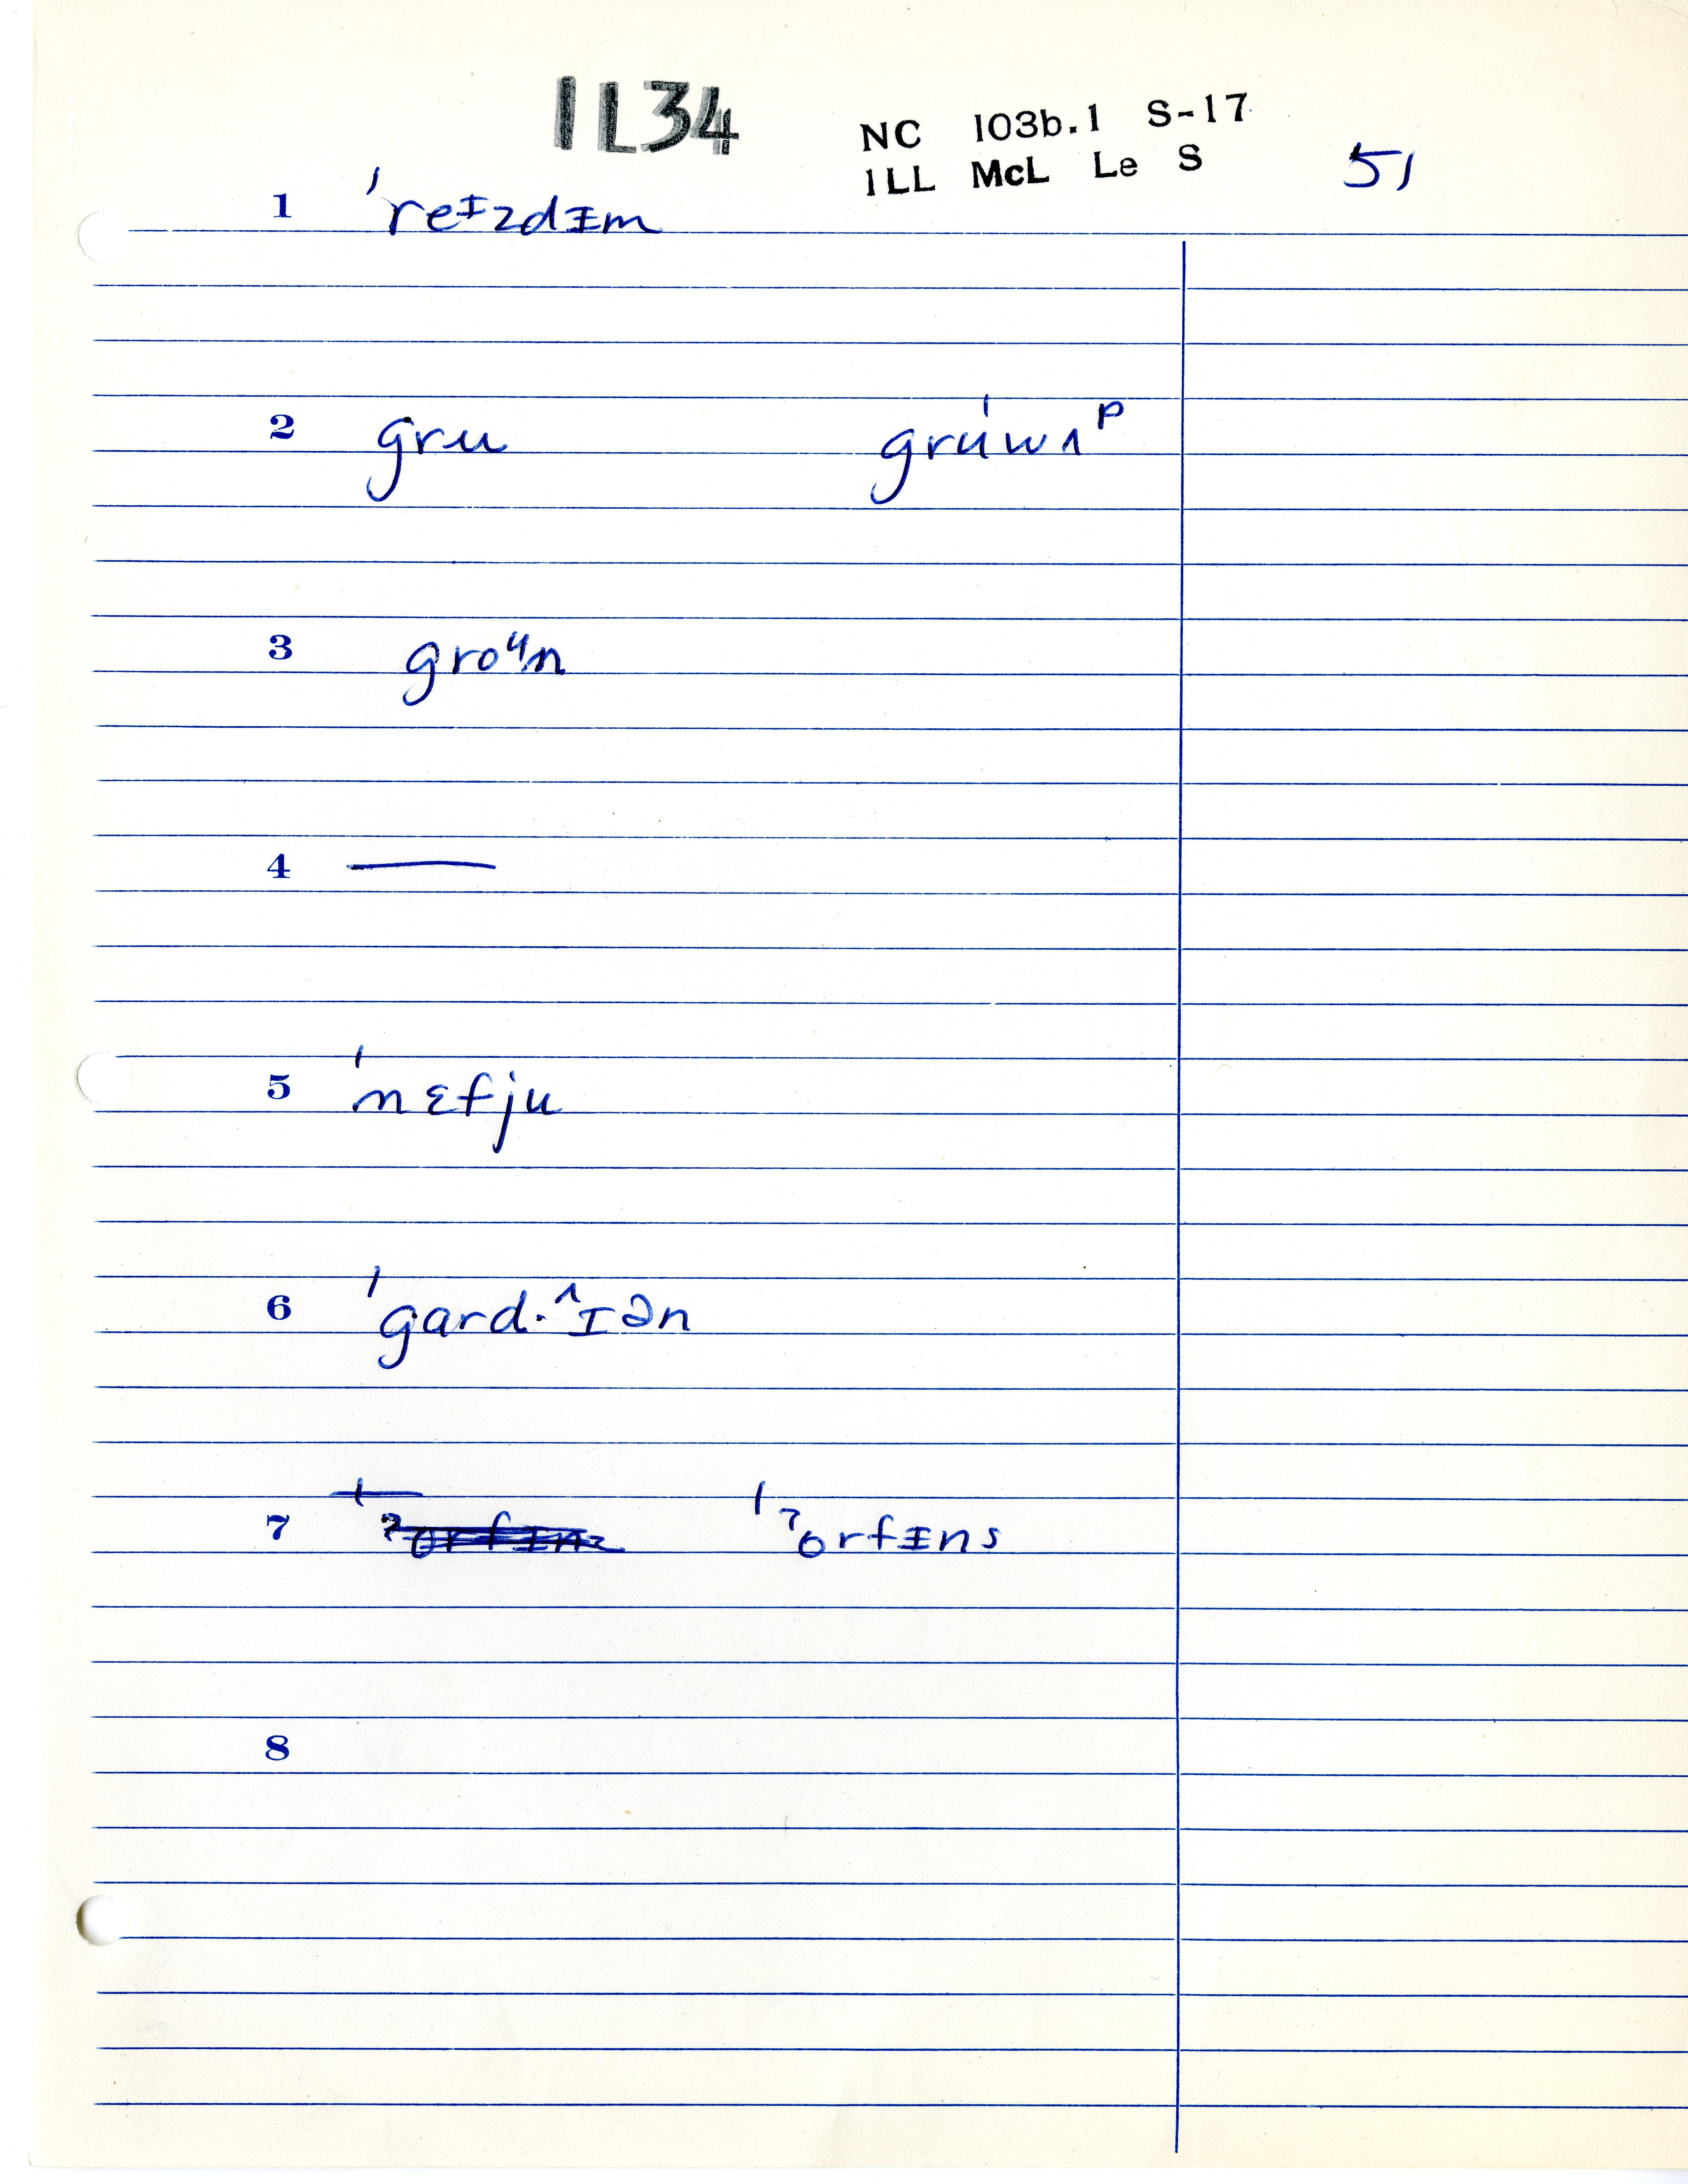 IL34
NC 103b.1 S-17
ILL McL Le S
51
1 ˈreᵻzdᵻm
2 gru grúwʌᵖ
3 groᶣn
4 —
5 ˈnɛfju
6 ˈgard·^ɪən
7 ˈʔorfᵻns
8